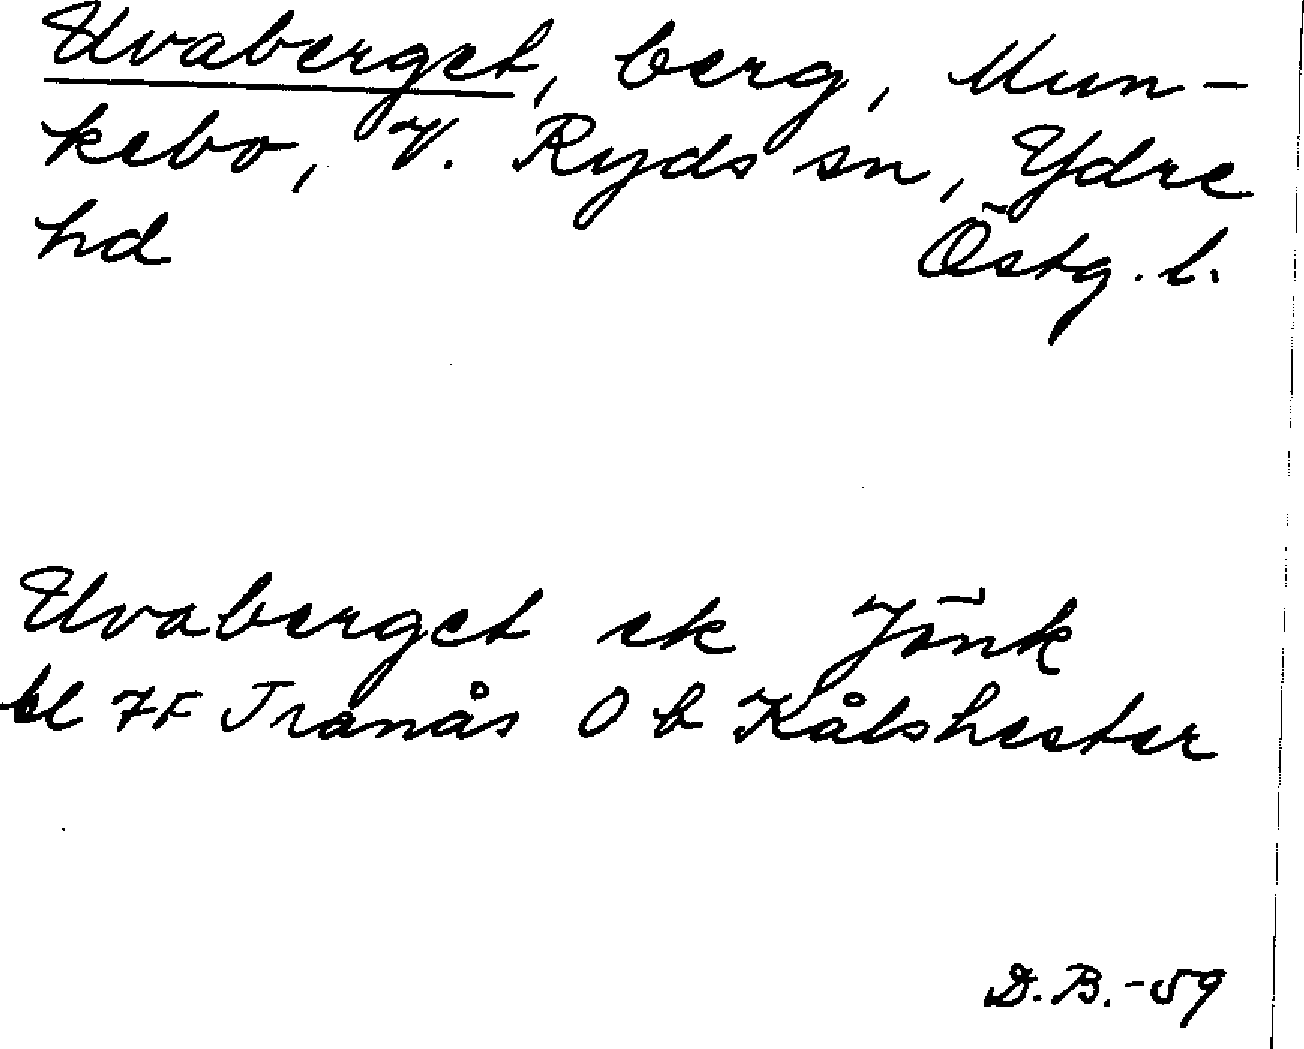 Uvaberget, berg, Mun-
kebo, V. Ryds sn, Ydre
hd Östg. l.
Uvaberget ek Jönk
bl 7F Tranås O b Kålshester
D.B.-59